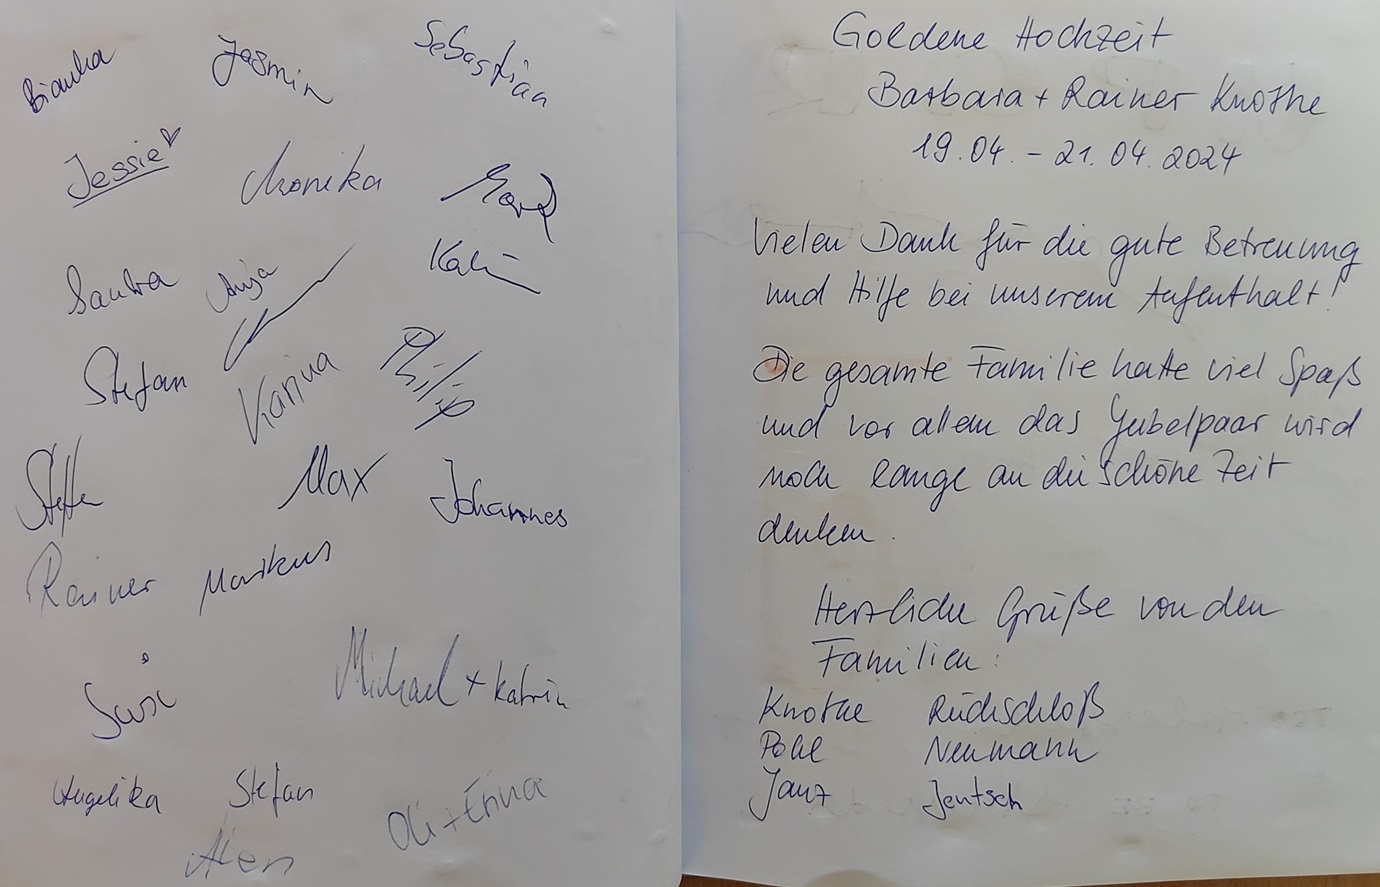 Bianka Jasmin Sebastian
Jessie Monika
Sandra Anja
Stefan Karina Philip
Max Johannes
Rainer Markus
Susi Michael + Katrin
Angelika Stefan Oli + Erina
Goldene Hochzeit
Barbara + Rainer Knothe
19.04. - 21.04.2024
Vielen Dank für die gute Betreuung
und Hilfe bei unserem Aufenthalt!
Die gesamte Familie hatte viel Spaß
und vor allem das Jubelpaar wird
noch lange an die schöne Zeit
denken.
Herzliche Grüße von den
Familien:
Knothe Rückschloß
Pohl Neumann
Janz Jentsch